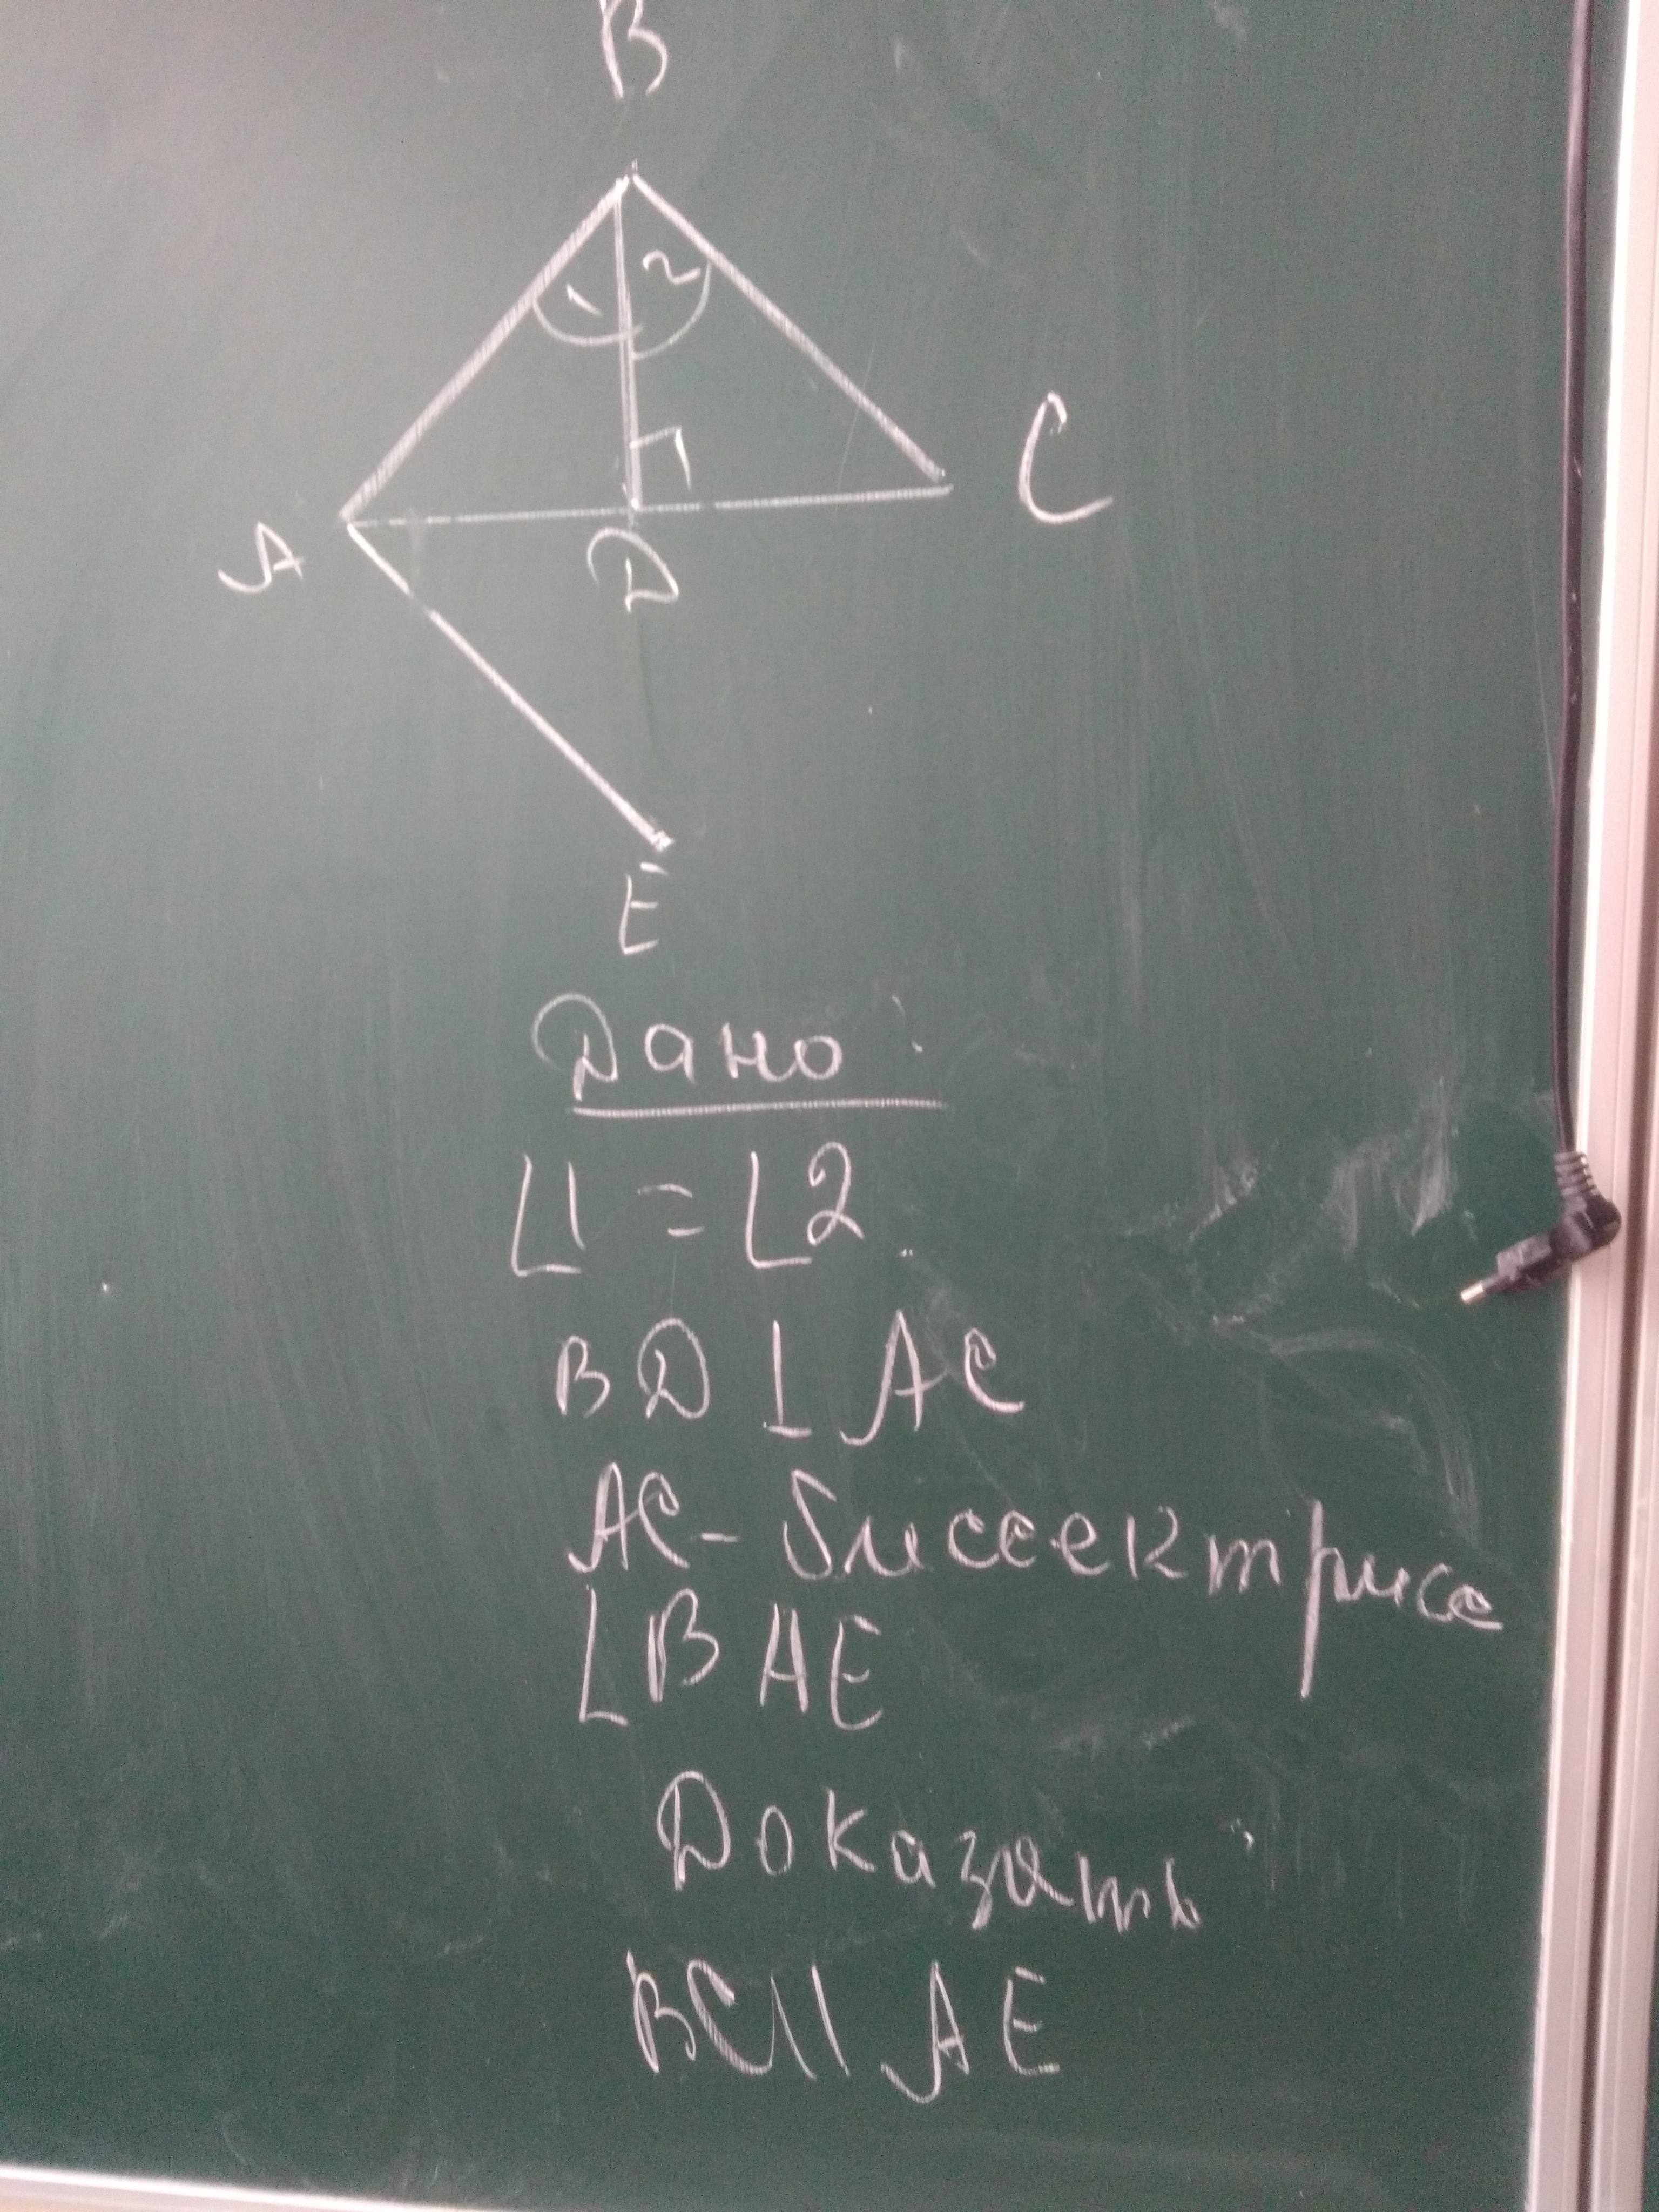 B
1 2
C
A
D
E
Дано:
∠1 = ∠2
BD ⊥ AC
AC - биссектриса
∠BAE
Доказать
BC || AE